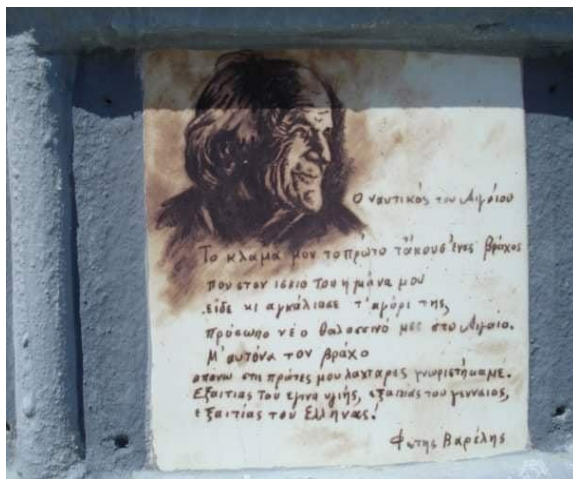 Ο ναυτικός του Αιγαίου
Το κλάμα μου το πρώτο τ' άκουσ' ένας βράχος
που στον ίσκιο του η μάνα μου
είδε κι αγκάλιασε τ' αγόρι της
πρόσωπο νέο θαλασσινό μες στο Αιγαίο.
Μ' αυτόνα τον βράχο
απάνω στις πρώτες μου λαχτάρες γνωριστήκαμε.
Εξαιτίας του έγινα υγιής, εξαιτίας του γενναίος,
εξαιτίας του Έλληνας!
Φώτης Βαρέλης